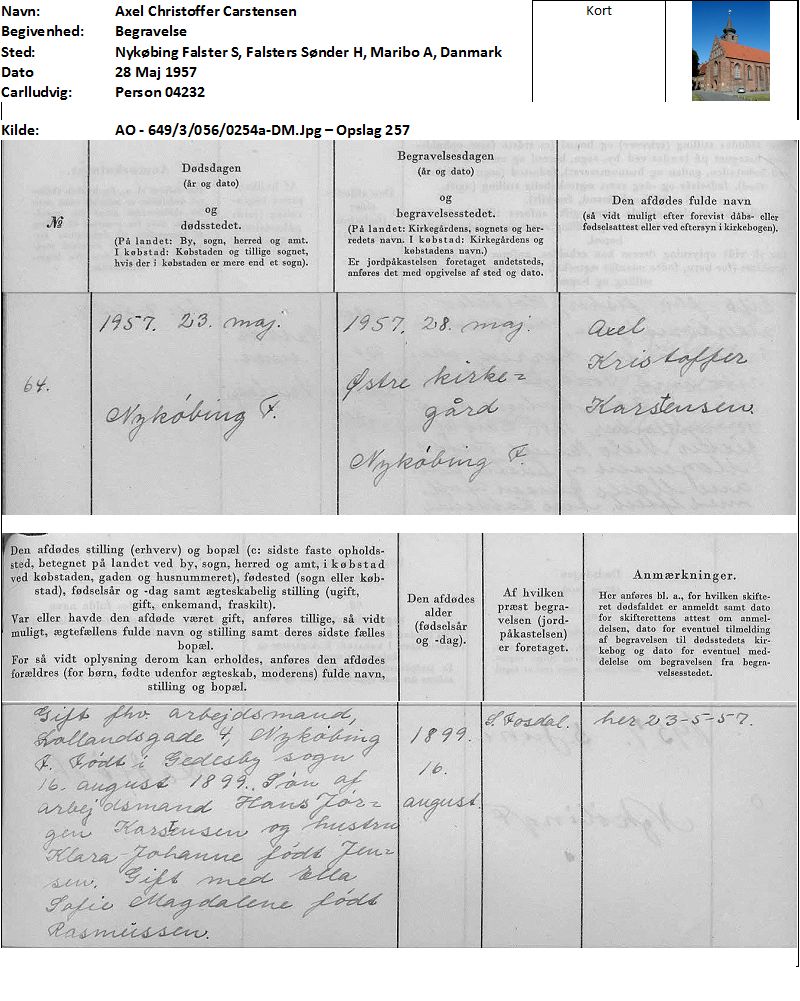 Navn: Axel Christoffer Carstensen
Begivenhed: Begravelse
Sted: Nykøbing Falster S, Falsters Sønder H, Maribo A, Danmark
Dato 28 Maj 1957
Carlludvig: Person 04232
Kort
Kilde: AO - 649/3/056/0254a-DM.Jpg – Opslag 257
№
Dødsdagen
(år og dato)
og
dødsstedet.
(På landet: By, sogn, herred og amt.
I købstad: Købstaden og tillige sognet,
hvis der i købstaden er mere end et sogn).
Begravelsesdagen
(år og dato)
og
begravelsesstedet.
(På landet: Kirkegårdens, sognets og her-
redets navn. I købstad: Kirkegårdens og
købstadens navn.)
Er jordpåkastelsen foretaget andetsteds,
anføres det med opgivelse af sted og dato.
Den afdødes fulde navn
(så vidt muligt efter forevist dåbs- eller
fødselsattest eller ved eftersyn i kirkebogen).
64.
1957. 23. maj.
Nykøbing F.
1957. 28. maj.
Østre kirke=
gård
Nykøbing F.
Axel
Kristoffer
Karstensen.
Den afdødes stilling (erhverv) og bopæl (c: sidste faste opholds-
sted, betegnet på landet ved by, sogn, herred og amt, i købstad
ved købstaden, gaden og husnummeret), fødested (sogn eller køb-
stad), fødselsår og -dag samt ægteskabelig stilling (ugift,
gift, enkemand, fraskilt).
Var eller havde den afdøde været gift, anføres tillige, så vidt
muligt, ægtefællens fulde navn og stilling samt deres sidste fælles
bopæl.
For så vidt oplysning derom kan erholdes, anføres den afdødes
forældres (for børn, fødte udenfor ægteskab, moderens) fulde navn,
stilling og bopæl.
Den afdødes
alder
(fødselsår
og -dag).
Af hvilken
præst begra-
velsen (jord-
påkastelsen)
er foretaget.
Anmærkninger.
Her anføres bl. a., for hvilken skifte-
ret dødsfaldet er anmeldt samt dato
for skifterettens attest om anmel-
delsen, dato for eventuel tilmelding
af begravelsen til dødsstedets kir-
kebog og dato for eventuel med-
delelse om begravelsen fra begra-
velsesstedet.
Gift fhv. arbejdsmand,
Lollandsgade 4, Nykøbing
F. Født i Gedesby sogn
16. august 1899. Søn af
arbejdsmand Hans Jør=
gen Karstensen og hustru
Klara Johanne født Jen=
sen. Gift med Ella
Sofie Magdalene født
Rasmussen.
1899.
16.
august.
S. Fosdal.
her 23-5-57.